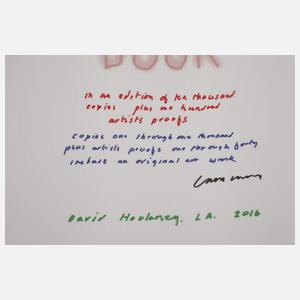 BOOK
in an edition of ten thousand
copies plus one hundred
artists proofs
copies one through one thousand
plus artists proofs one through forty
include an original art work
David Hockney, L.A. 2016